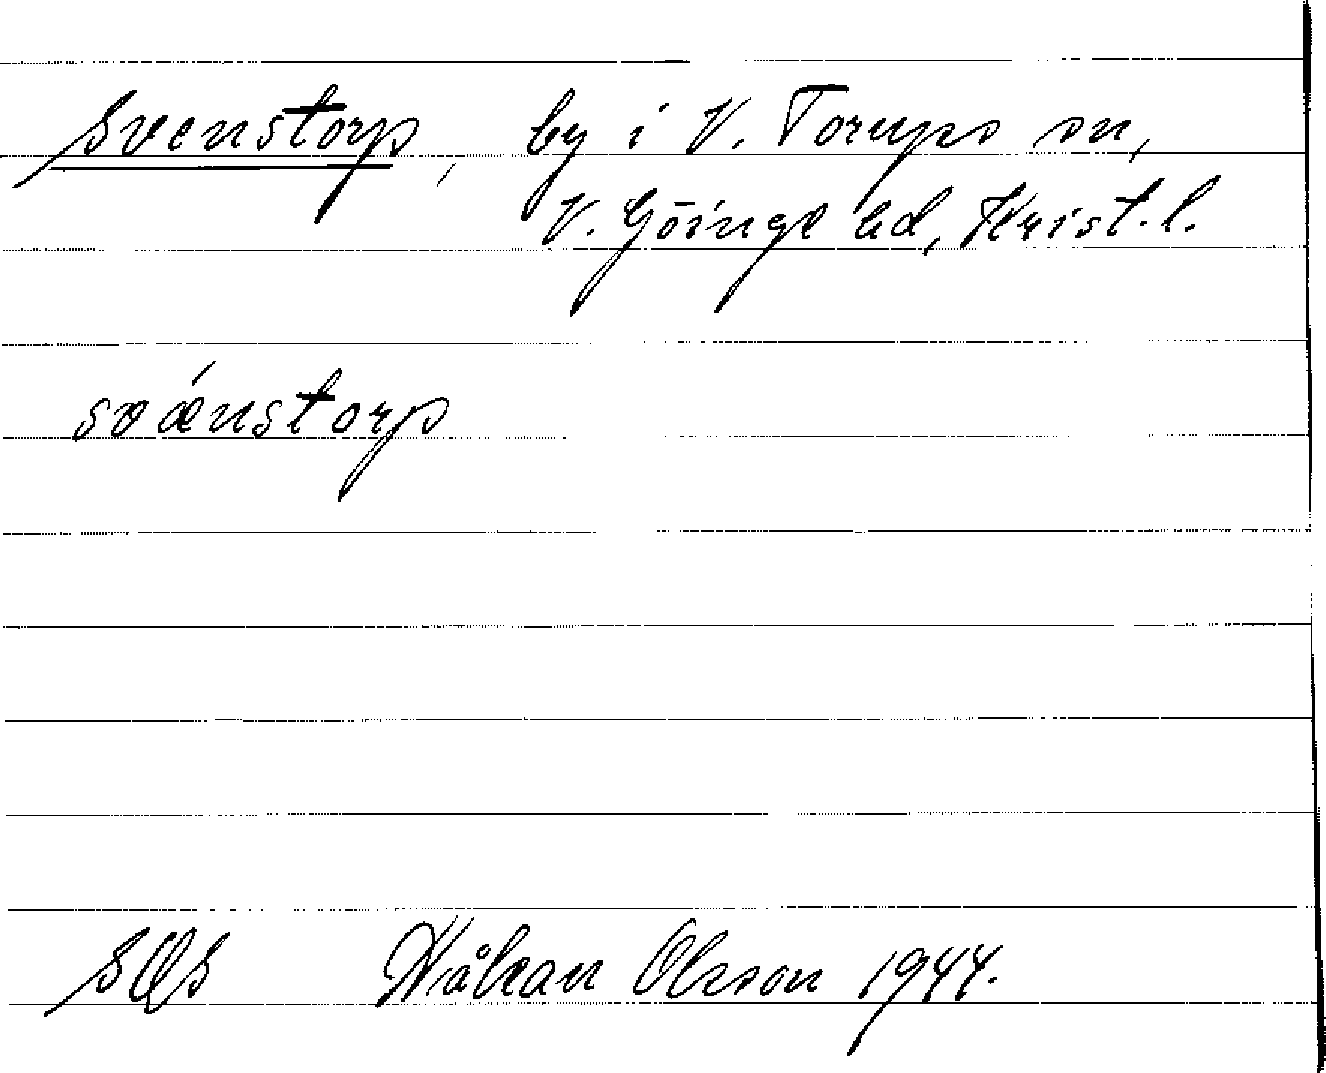 Svenstorp, by i V. Torups sn,
V. Göinge hd, Krist. l.
svǽnstorp
SOS Håkan Olsson 1944.